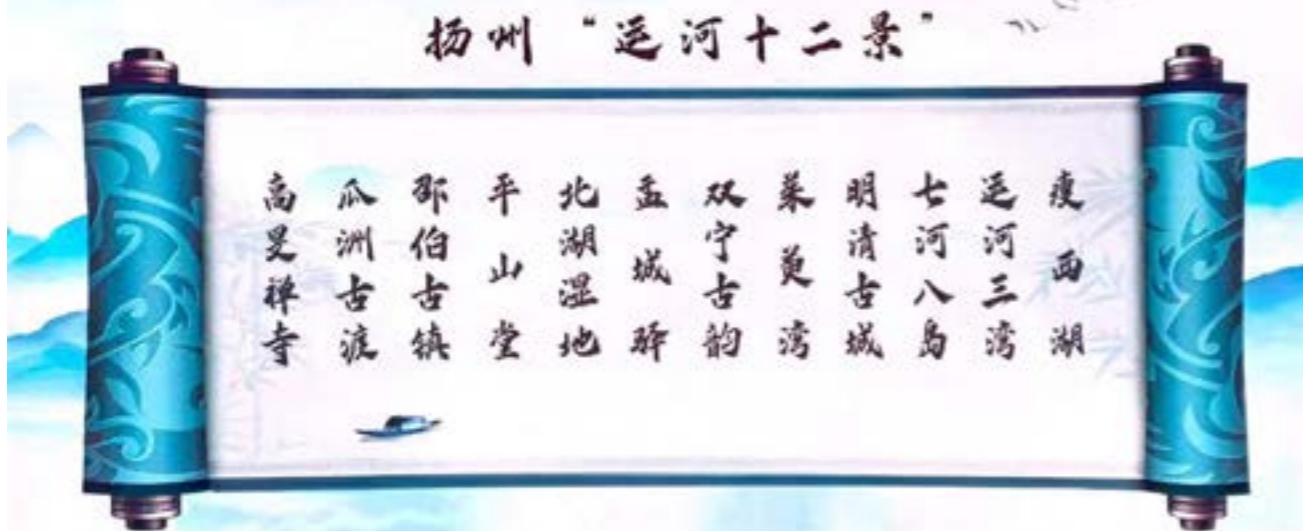 扬州“运河十二景”
瘦西湖
运河三湾
七河八岛
明清古城
茱萸湾
双宁古韵
孟城驿
北湖湿地
平山堂
邵伯古镇
瓜洲古渡
高旻禅寺